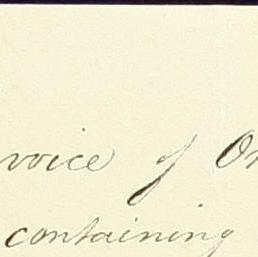 voice of On
containing